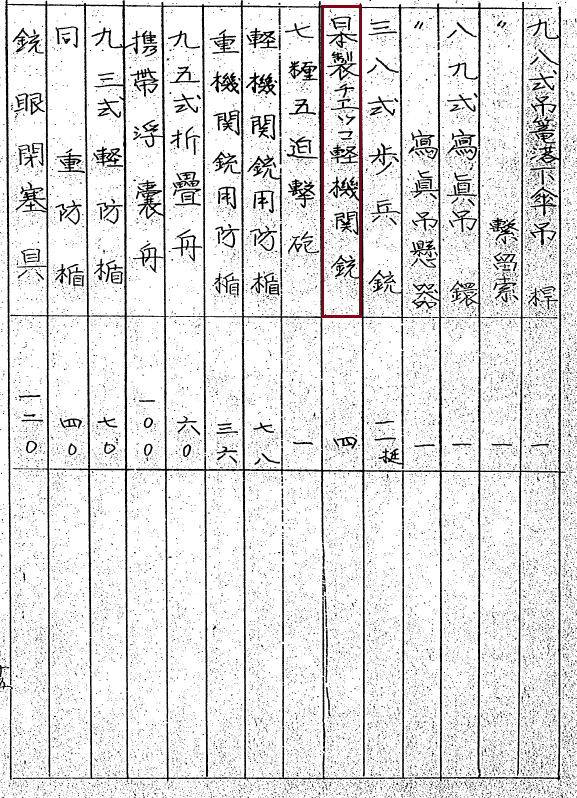 九八式吊籠落下傘吊桿 一
〃 繋留索 一
八九式寫眞吊鐶 一
〃 寫眞吊懸器 一
三八式歩兵銃 二一挺
日本製チエッコ軽機関銃 四
七糎五迫撃砲 一
軽機関銃用防楯 七八
重機関銃用防楯 三六
九五式折疊舟 六〇
携帯浮嚢舟 一〇〇
九三式軽防楯 七〇
同 重防楯 四〇
銃眼閉塞具 一二〇